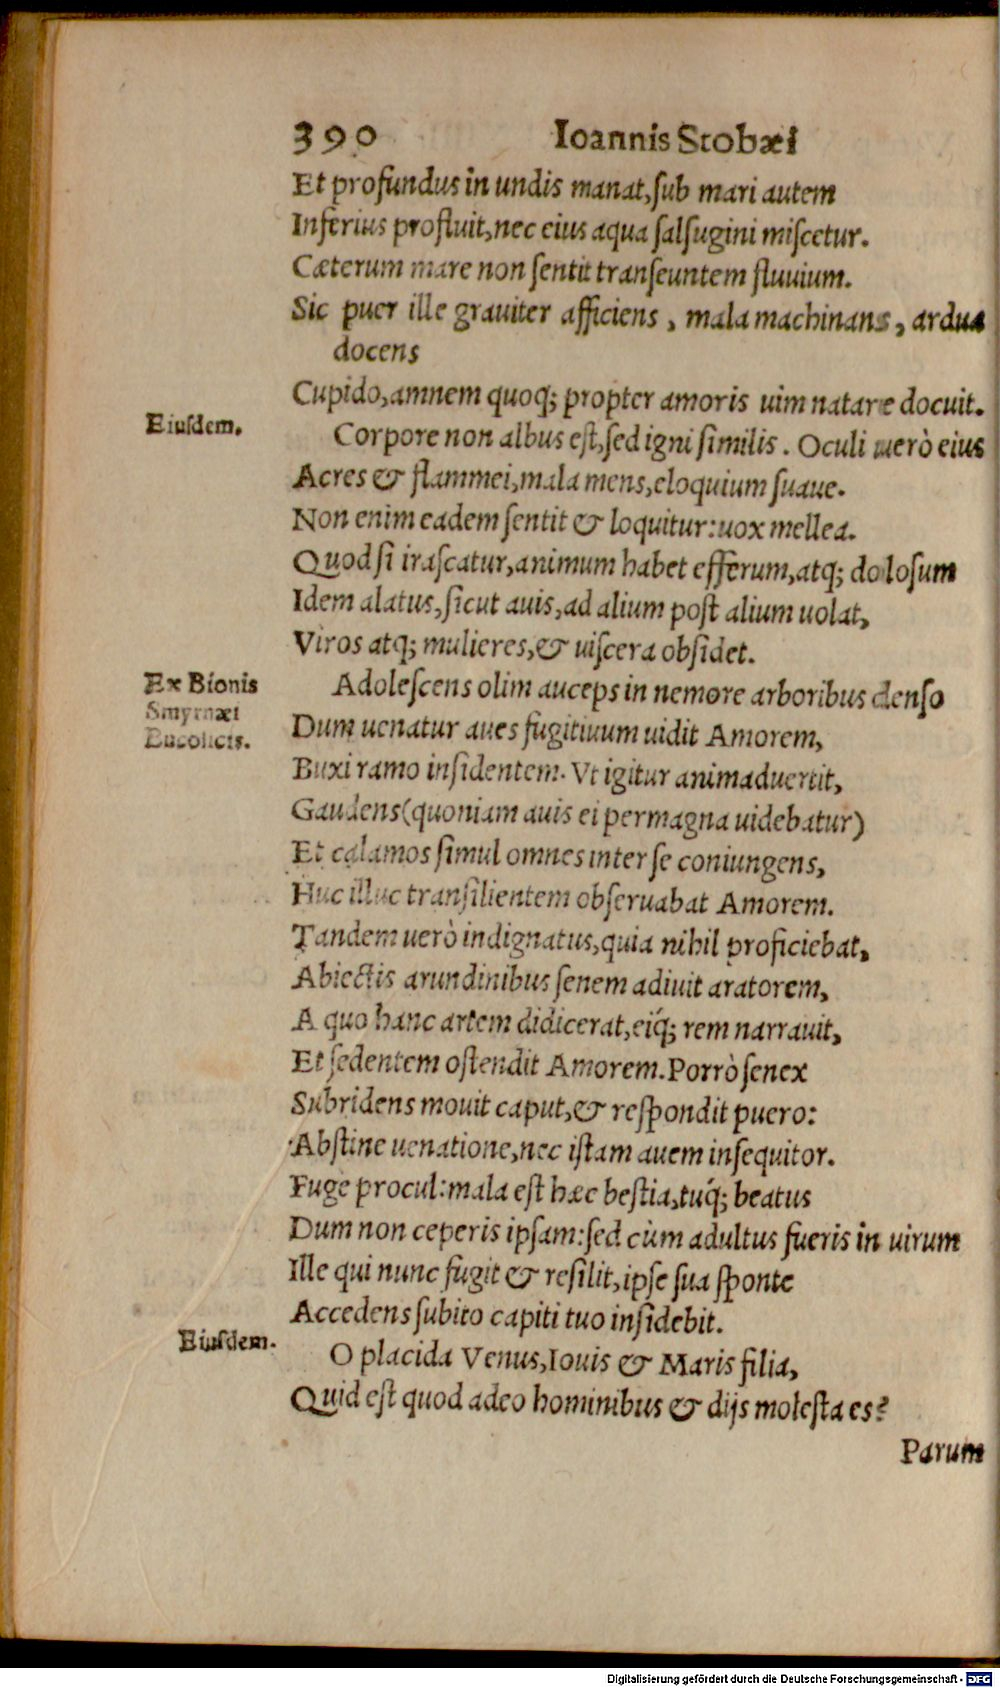 390 Ioannis Stobæi
Et profundus in undis manat, sub mari autem
Inferius profluit, nec eius aqua salsugini miscetur.
Cæterum mare non sentit transeuntem fluuium.
Sic puer ille grauiter afficiens, mala machinans, ardua
docens
Cupido, amnem quoq; propter amoris uim natare docuit.
Eiusdem.
Corpore non albus est, sed igni similis. Oculi uerò eius
Acres & flammei, mala mens, eloquium suaue.
Non enim eadem sentit & loquitur: uox mellea.
Quod si irascatur, animum habet efferum, atq; dolosum
Idem alatus, sicut auis, ad alium post alium uolat,
Viros atq; mulieres, & uiscera obsidet.
Ex Bionis
Smyrnæi
Bucolicis.
Adolescens olim auceps in nemore arboribus denso
Dum uenatur aues fugitiuum uidit Amorem,
Buxi ramo insidentem. Vt igitur animaduertit,
Gaudens (quoniam auis ei permagna uidebatur)
Et calamos simul omnes inter se coniungens,
Huc illuc transilientem obseruabat Amorem.
Tandem uerò indignatus, quia nihil proficiebat,
Abiectis arundinibus senem adiuit aratorem,
A quo hanc artem didicerat, eiq́; rem narrauit,
Et sedentem ostendit Amorem. Porrò senex
Subridens mouit caput, & respondit puero:
Abstine uenatione, nec istam auem insequitor.
Fuge procul: mala est hæc bestia, tuq́; beatus
Dum non ceperis ipsam: sed cùm adultus fueris in uirum
Ille qui nunc fugit & resilit, ipse sua sponte
Accedens subito capiti tuo insidebit.
Eiusdem.
O placida Venus, Iouis & Maris filia,
Quid est quod adeo hominibus & dijs molesta es?
Parum
Digitalisierung gefördert durch die Deutsche Forschungsgemeinschaft - DFG